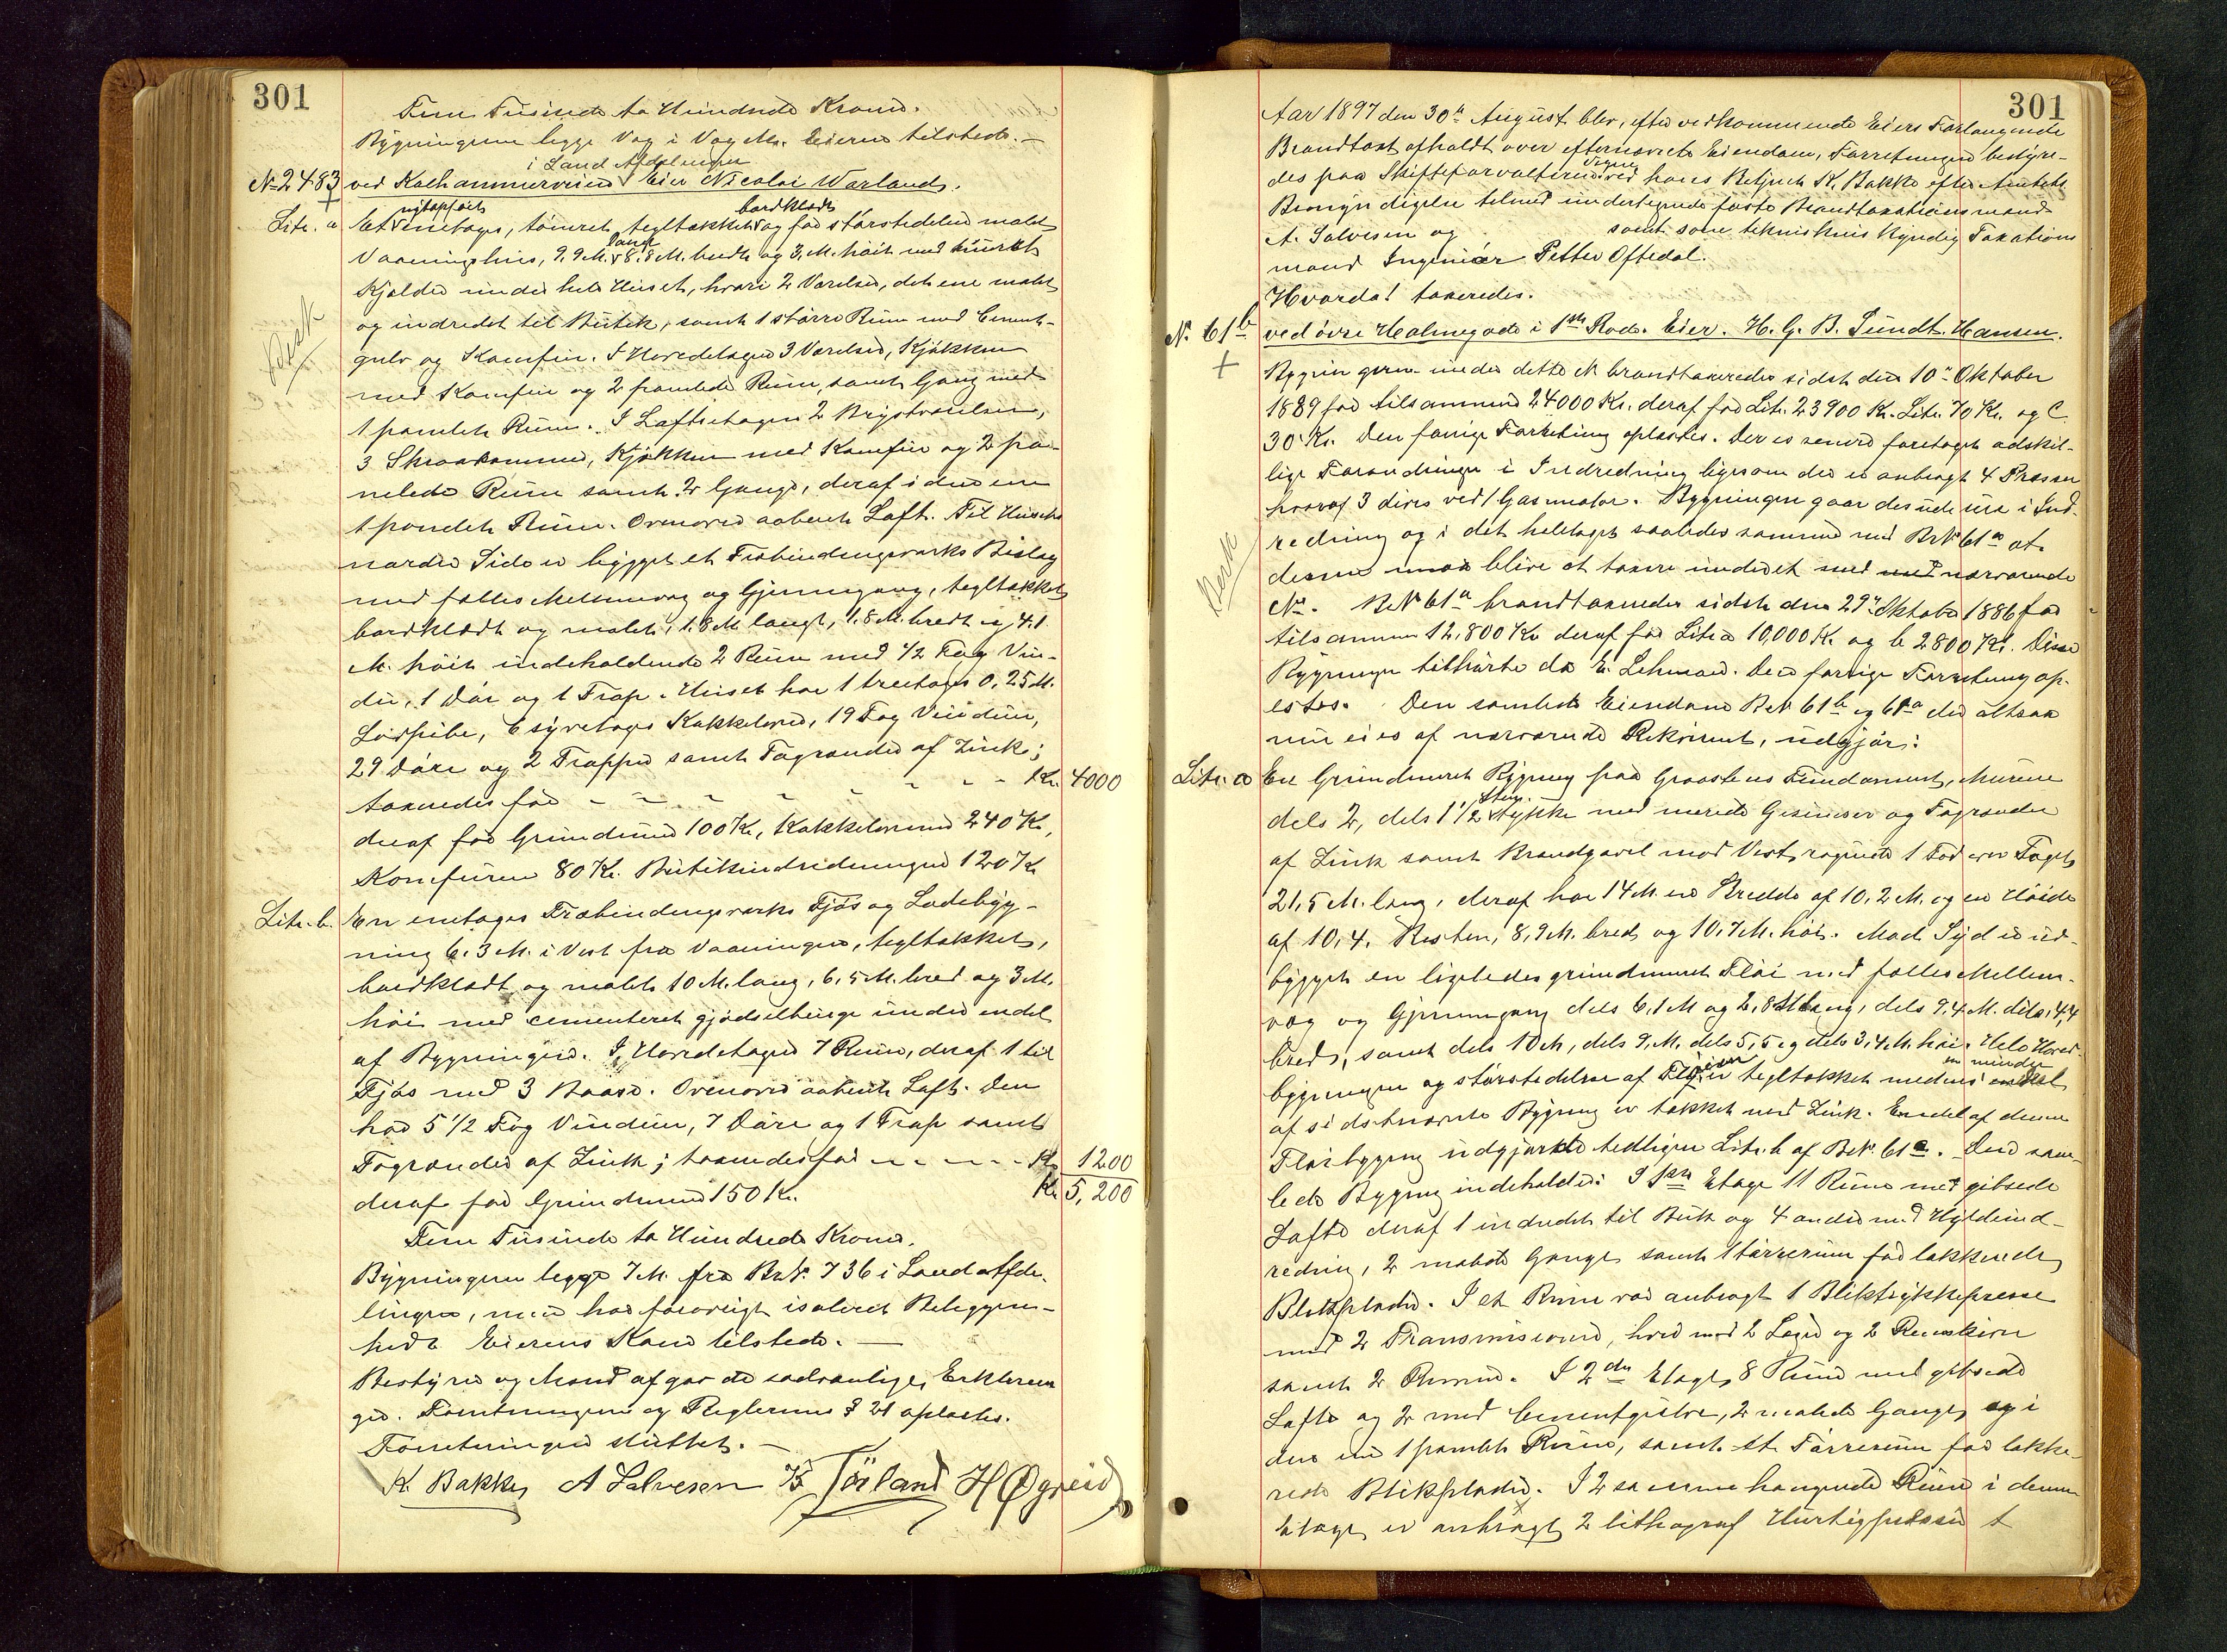 301
Fem Tusinde to Hundrede Kroner.
Bygningerne ligge Væg i Væg M. Eieren tilstede. —
i Land Afdelingen
No 2483 ved Kalhammerveien Eier Nicolai Warland.
nyopført bordklædt
Litr. a Et enetages, tømret, tegltækket og for størstedelen malet
langt
Vaaningshus, 9,9 M. 8,8 M. bredt og 3, M. høit med muret
Kjælder under hele Huset, hvori 2 Værelser, det ene malet
og indredet til Butik, samt 1 større Rum med Cement-
gulv og Komfur. I Hovedetagen 3 Værelser, Kjøkken
med Komfur og 2 panelede Rum, samt Gang med
1 panelet Rum. I Loftsetagen 2 Brystværelser,
3 Skraakammer, Kjøkken med Komfur og 2 pa-
nelede Rum samt 2 Gange, deraf i den ene
1 panelet Rum. Ovenover aabent Loft. Til Husets
nordre Side er bygget et Træbindingsværks Bislag
med fælles Mellemvæg og Gjennemgang, tegltækket
bordklædt og malet, 1,8 M langt, 1,8 M. bredt og 4,1
M. høit indeholdende 2 Rum med 1/2 Fag Vin-
du, 1 Dør og 1 Trap. Huset har 1 treetages 0,25 M.
Lødpibe, 6 syretags Kakkelovne, 19 Fag Vinduer,
29 Døre og 2 Trapper samt Tagrender af Zink;
taxeredes for - - - - - - - Kr. 4000
deraf for Grundmur 100 Kr, Kakkelovnene 240 Kr,
Komfurene 80 Kr. Butikindredningen 120 Kr
Litr. b. En enetages Træbindingsværks Fjøs og Ladebyg-
ning 6,3 M. i Vest fra Vaaningen, tegltækket,
bordklædt og malet 10 M. lang, 6,5 M. bred og 3 M.
høi med cementeret gjødselbinge under endel
af Bygningen. I Hovedetagen 7 Rum, deraf 1 til
Fjøs med 3 Baase. Ovenover aabent Loft. Den
har 5 1/2 Fag Vinduer, 7 Døre og 1 Trap samt
Tagrender af Zink; taxeredes for - - - - - Kr 1200
deraf for Grundmur 150 Kr. Kr 5,200
Fem Tusinde to Hundrede Kroner.
Bygningerne ligge 7 M. fra Br. No. 736 i Landafde-
lingen, men har forøvrigt isoleret Beliggen-
hed. Eierens Kone tilstede. —
Bestyrer og Mænd afgav de sædvanlige Erklærin-
ger. Forretningen og Reglernes § 21 oplæstes.
Forretningen sluttet. —
K. Bakke A Salvesen B Tørland H Øgreid
Besk
301
Aar 1897 den 30te August blev, efter vedkommende Eiers Forlangende
Brandtaxt afholdt over efternævnte Eiendom, Forretningen bestyre-
Vegne
des paa Skifteforvalterens ved hans Betjent K. Bakke efter Amtets
Bemyndigelse tilmed undertegnede faste Brandtaxationsmænd
A. Salvesen og samt som teknisk kyndig Taxations
mand Ingeniør Petter Oftedal.
Hvorda! taxeredes.
No. 61b ved øvre Holmegade i 1ste Rode. Eier. H. G. B. Sundt. Hansen.
Bygningerne under dette No brandtaxeredes sidst den 10de Oktober
1889 for tilsammen 24000 Kr. deraf for Litr. 23900 Kr. Litr. 70 Kr. og C
30 Kr. Den forrige Forretning oplæstes. Der er senere foretaget adskil-
lige Forandringer i Indredning ligesom der er anbragt 4 Presser
hvoraf 3 drives ved 1 Gasmotor. Bygningen gaar desuden i Ind-
redning og i det heletaget saaledes sammen med Br No 61a at
denne maa blive at taxere under et med nærværende
No. Br No 61a brandtaxeredes sidst den 29de Oktober 1886 for
tilsammen 12,800 Kr deraf for Litr a 10,000 Kr og b 2800 Kr. Disse
Bygninger tilhørte da E. Lehmann. Den forrige Forretning op-
læstes. Den samlede Eiendom Br No 61b og 61a der altsaa
nu eies af nærværende Rekvirent, udgjør:
Litr. a En Grundmuret Bygning paa Graastens Fundament, Murene
Sten
dels 2, dels 1 1/2 tykke med murede Gesimser og Tagrender
af Zink samt Brandgavl mod Vest ragende 1 Fod over Taget,
21,5 M. lang, deraf har 14 M. en Bredde af 10,2 M. og en Høide
af 10,4. Resten, 8,9 M. bred og 10,7 M. høi. Mod Syd er ud-
bygget en ligeledes grundmuret Fløi med fælles Mellem-
væg og Gjennemgang dels 6,1 M og 2,8 M lang, dels 9,4 M. dels 1,44
bred, samt dels 10 M, dels 9, M. dels 5,5 og dels 3,4 M. høi. Hele Hoved-
en mindre
bygningen og størstedelen af Fløien er tegltækket medens en Del
af sidstnævnte Bygning er tækket med Zink. Endel af denne
Fløibygning udgjorde tidligere Litr. b af Br No. 61a. Den sam-
lede Bygning indeholder: I 1ste Etage 11 Rum med gibsede
Lofte deraf 1 indredet til Butik og 4 andre med Hyldeind-
redning, 2 malede Gange samt 1 tørrerum for lakkerede
Blikplader. I et Rum var anbragt 1 Bliktrykkepresse
med 2 Transmisioner, hver med 2 Leger og 2 Remskiver
samt 2 Remme. I 2den Etage 8 Rum med gibsede
Lofte og 2 med Cementgulve, 2 malede Gange, og i
den ene 1 panelet Rum, samt et Tørrerum for lakke-
rede Blikplader. I 2 sammenhængende Rum i denne
Etage er anbragt 2 lithograf Hurtigpresser
Besk